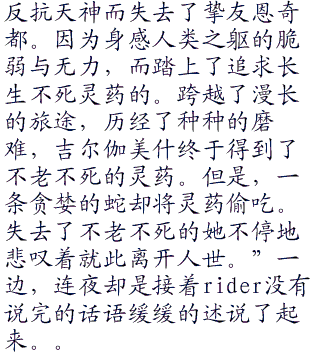 反抗天神而失去了挚友恩奇
都。因为身感人类之躯的脆
弱与无力，而踏上了追求长
生不死灵药的。跨越了漫长
的旅途，历经了种种的磨
难，吉尔伽美什终于得到了
不老不死的灵药。但是，一
条贪婪的蛇却将灵药偷吃。
失去了不老不死的她不停地
悲叹着就此离开人世。”一
边，连夜却是接着rider没有
说完的话语缓缓的述说了起
来。。